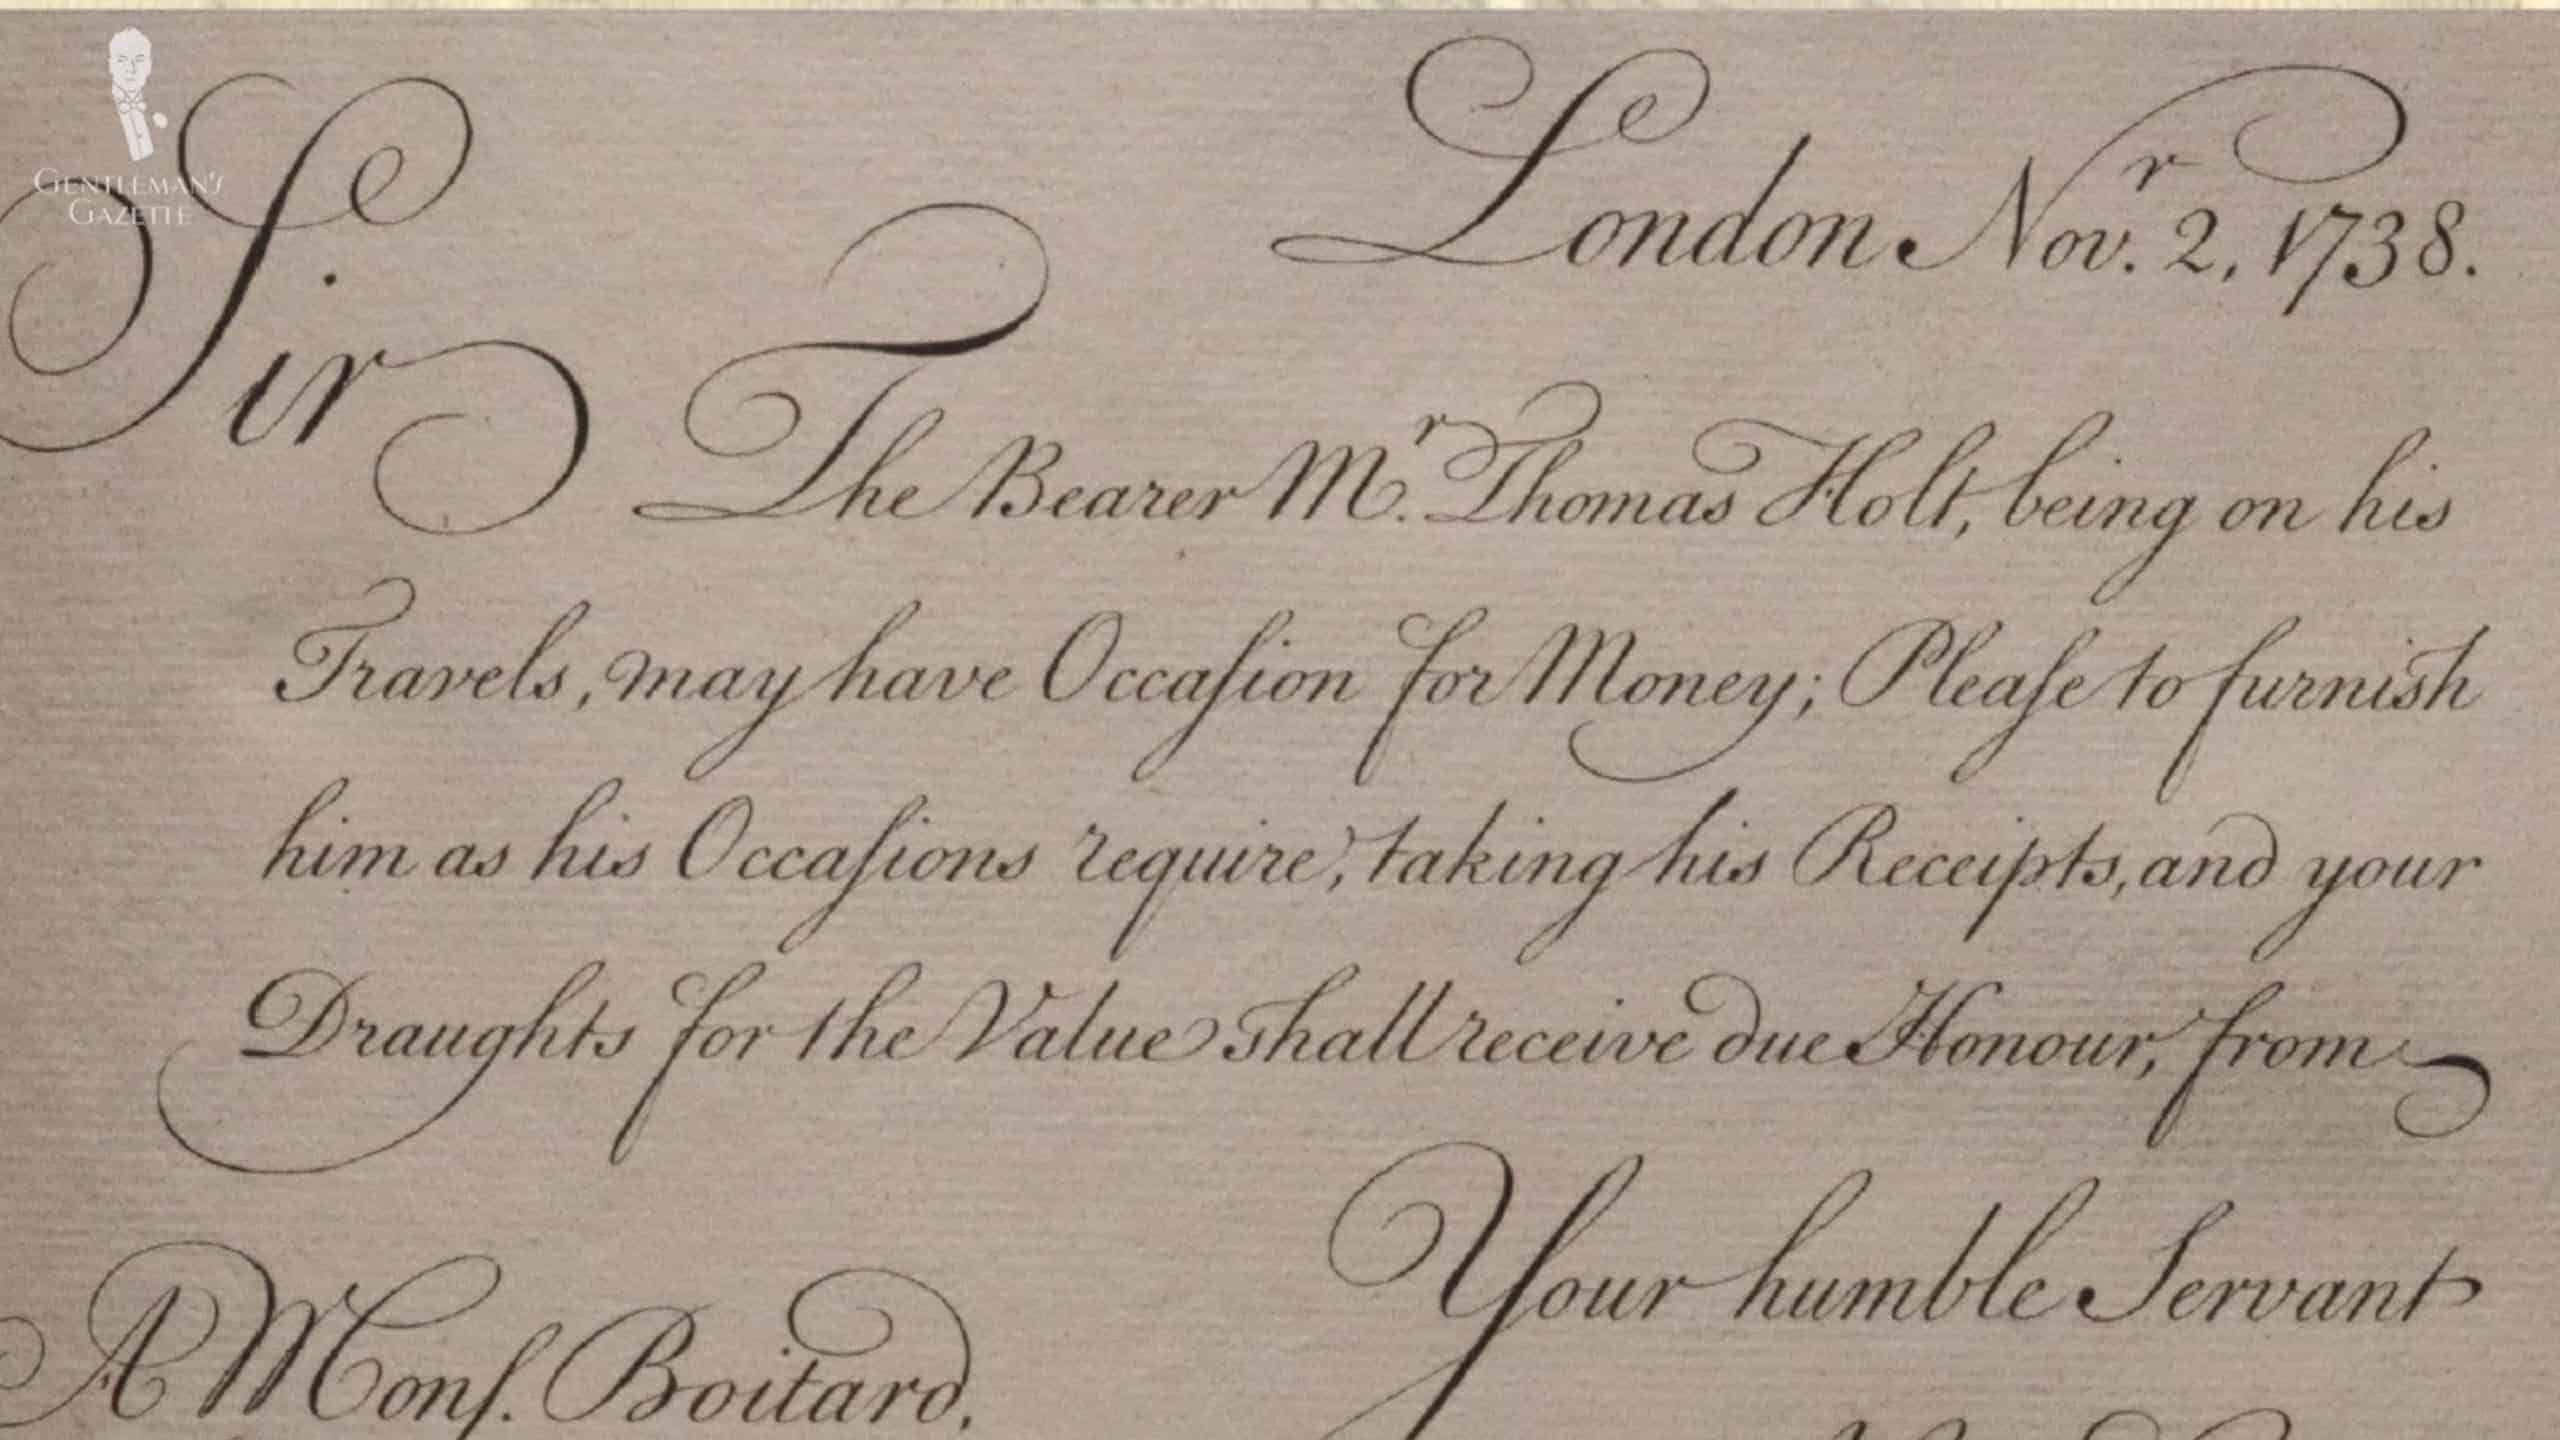 GENTLEMAN'S
GAZETTE
London Novʳ. 2, 1738.
Sir
The Bearer Mʳ. Thomas Holt, being on his
Travels, may have Occaſion for Money; Pleaſe to furnish
him as his Occaſions require, taking his Receipts, and your
Draughts for the Value shall receive due Honour, from
Your humble Servant
A Monſ. Boitard.